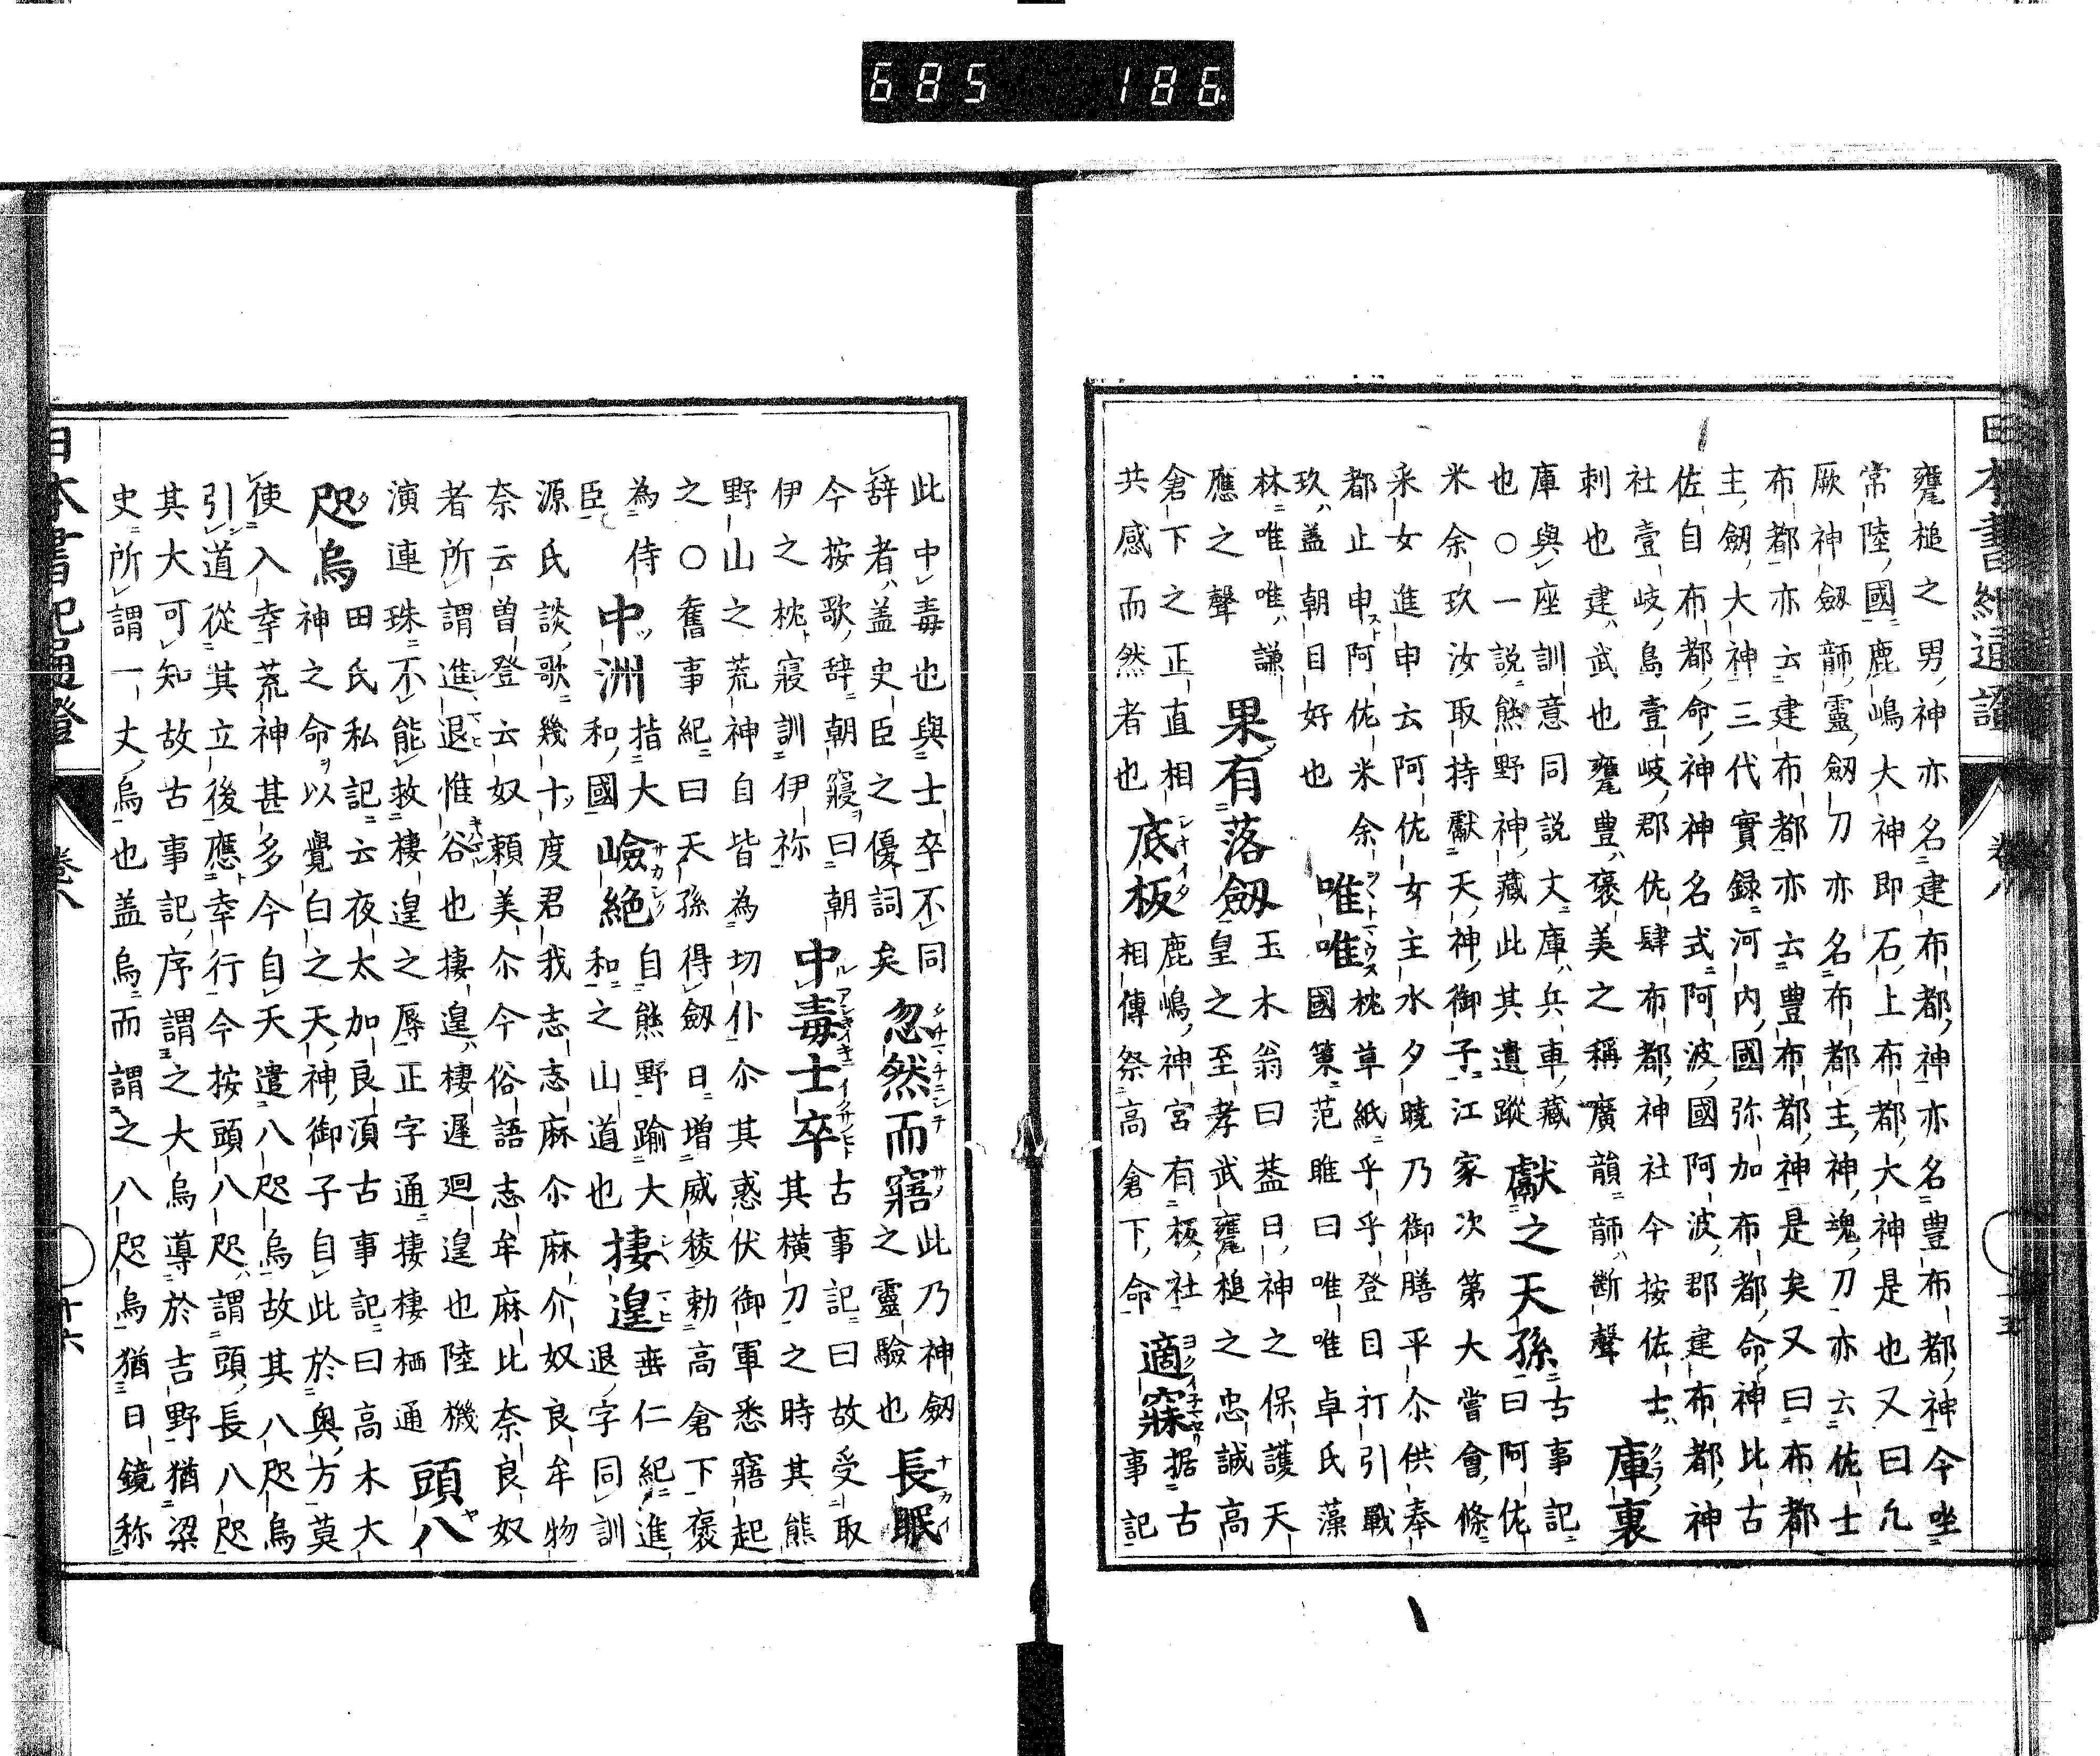 685 186
甕槌之男神亦名建布都神亦名豊布都神今坐
常陸國鹿嶋大神即石上布都大神是也又曰凢
厥神劔韴靈劔刀亦名布都主神魂刀亦云佐士
布都亦云建布都亦云豊布都神是矣又曰布都
主劔大神三代實録河内國弥加布都命神比古
佐自布都命神神名式阿波國阿波郡建布都神
社壹岐島壹岐郡佐肆布都神社今按佐士
刺也建武也甕豊褒美之稱廣韻韴断聲 庫裏
庫與座訓意同説文庫兵車藏 獻之天孫 古事記
也○一説熊野神藏此其遺蹤 曰阿佐
米余玖汝取持獻天神御子江家次第大嘗會條
采女進申云阿佐女主水夕曉乃御膳平尒供奉
都止申阿佐米余 唯唯 枕草紙乎乎登目打引戰
玖盖朝目好也 國策范雎曰唯唯卓氏藻
林唯唯謙 果有落劔 玉木翁曰葢日神之保護天
應之聲 皇之至孝武甕槌之忠誠高
倉下之正直相 底板 鹿嶋神宮有板社 適寐 据古
共感而然者也 相傳祭高倉下命 事記
此中毒也與士卒不同 忽然而寤 此乃神劔 長眠
辞者盖史臣之優詞矣 之靈驗也
今按歌辞朝寢曰朝 中毒士卒 古事記曰故受取
伊之枕寢訓伊祢 其横刀之時其熊
野山之荒神自皆為切仆尒其惑伏御軍悉寤起
之○舊事紀曰天孫得劔日増威稜勅高倉下褒
為侍 中洲 指大 嶮絶 自熊野踰大 棲遑 垂仁紀進
臣 和國 和之山道也 退字同訓
源氏談歌幾十度君我志志麻尒麻介奴良牟物
奈云曽登云奴頼美尒今俗語志牟麻比奈良奴
者所謂進退惟谷也棲遑棲遲廻遑也陸機
演連珠不能救棲遑之辱正字通棲棲栖通 頭八
咫烏 田氏私記云夜太加良湏古事記曰高木大
神之命以覺白之天神御子自此於奥方莫
使入幸荒神甚多今自天遣八咫烏故其八咫烏
引道從其立後應幸行今按頭八咫謂頭長八咫
其大可知故古事記序謂之大烏導於吉野猶梁
史所謂一丈烏也盖烏而謂之八咫烏猶日鏡称